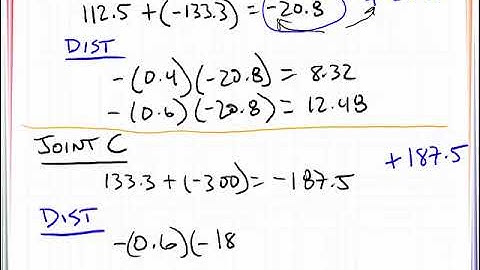 112.5 + (-133.3) = -20.8
DIST
-(0.4)(-20.8) = 8.32
-(0.6)(-20.8) = 12.48
JOINT C
+187.5
133.3 + (-300) = -187.5
DIST
-(0.6)(-18